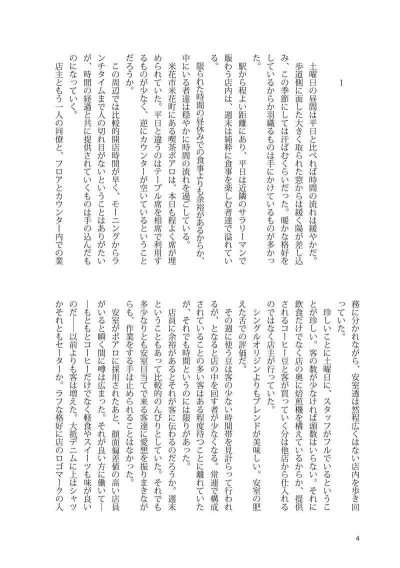 1
土曜日の昼間は平日と比べれば時間の流れは緩やかだ。
歩道側に面した大きく取られた窓からは緩く陽が差し込
み、この季節にしては汗ばむくらいだった。暖かな格好を
しているからか羽織るものは手にかけているものが多かっ
た。
駅から程よい距離にあり、平日は近隣のサラリーマンで
賑わう店内は、週末は純粋に食事を楽しむ者達で溢れてい
る。
限られた時間の昼休みでの食事よりも余裕があるからか、
中にいる者達は穏やかに時間の流れを過ごしている。
米花市米花町にある喫茶ポアロは、本日も程よく席が埋
められていた。平日と違うのはテーブル席を相席で利用す
るものが少なく、逆にカウンターが空いているということ
だろうか。
この周辺では比較的開店時間が早く、モーニングからラ
ンチタイムまで人の切れ目がないということはありがたい
が、時間の経過と共に提供されていくものは手の込んだも
のになっていく。
店主ともう一人の同僚と、フロアとカウンター内での業
務に分かれながら、安室透は然程広くはない店内を歩き回
っていた。
珍しいことに土曜日に、スタッフがフルでいるというこ
とが珍しい。客の数が少なければ頭数はいらない。それに
飲食だけでなく店の奥に焙煎機を構えているからか、提供
されるコーヒー豆と客が買っていく分は他店から仕入れる
のではなく店主が行っていた。
シングルオリジンよりもブレンドが美味しい。安室の肥
えた舌での評価だ。
その週に使う豆は客の少ない時間帯を見計らって行われ
るが、となると店の中を回す者が少なくなる。常連で構成
されていることの多い客はある程度待つことに離れていた
が、それでも時間というのには限りがあった。
店員に余裕があるとそれが客に伝わるのだろうか。週末
ということもあって比較的のんびりとしていた。それでも
多少なりとも安室目当てで来る客達に愛想を振りまきなが
らも、作業をする手は止められることはなかった。
安室がポアロに採用されたあと、顔面偏差値の高い店員
がいると瞬く間に噂は広まった。それが良い方に働いて―
―もともとコーヒーだけでなく軽食やスイーツも味が良い
のだ――以前よりも客は増えた。大抵デニムに上はシャツ
かそれともセーターか。ラフな格好に店のロゴマークの入
4